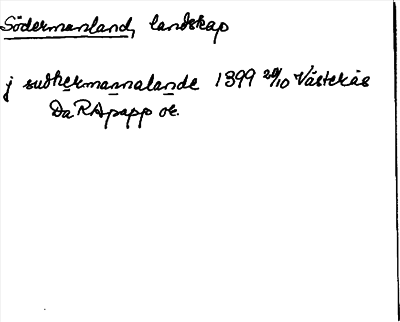 Södermanland, landskap
j sudhermannalande 1399 20/10 Västerås
DaRApapp or.